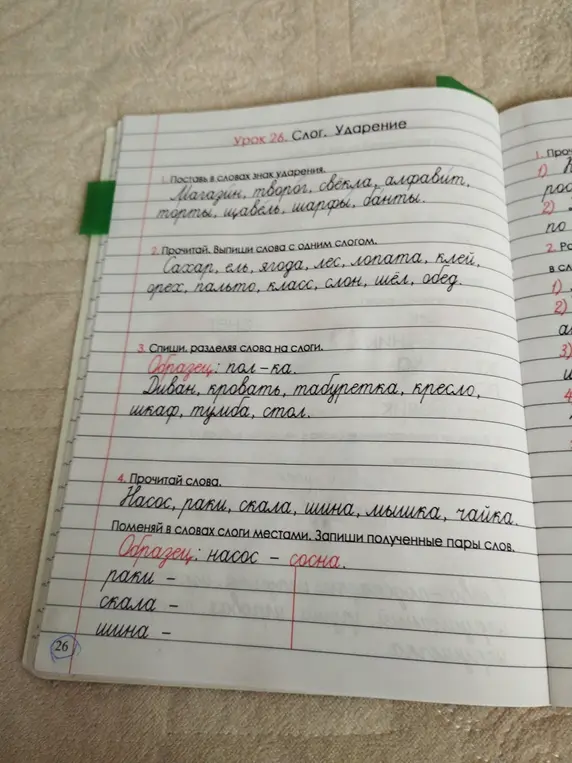 Урок 26. Слог. Ударение
1. Поставь в словах знак ударения.
Магази́н, творо́г, свёкла, алфави́т,
то́рты, щаве́ль, ша́рфы, ба́нты.
2. Прочитай. Выпиши слова с одним слогом.
Сахар, ель, ягода, лес, лопата, клей,
орех, пальто, класс, слон, шёл, обед.
3. Спиши, разделяя слова на слоги.
Образец: пол-ка.
Диван, кровать, табуретка, кресло,
шкаф, тумба, стол.
4. Прочитай слова.
Насос, раки, скала, шина, мышка, чайка.
Поменяй в словах слоги местами. Запиши полученные пары слов.
Образец: насос – сосна.
раки –
скала –
шина –
26
1. Проч
1)
рос
2)
по
2. Ро
в сл
1)
2)
3)
4